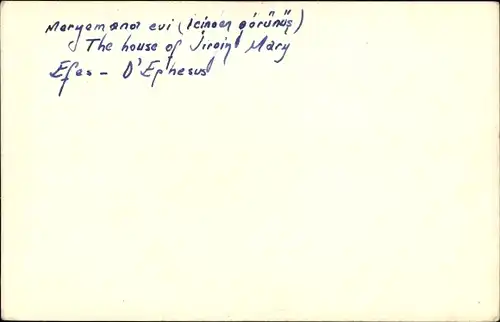 Meryemana evi (İcinden görünüş)
The house of Virgin Mary
Efes - D'Ephesus